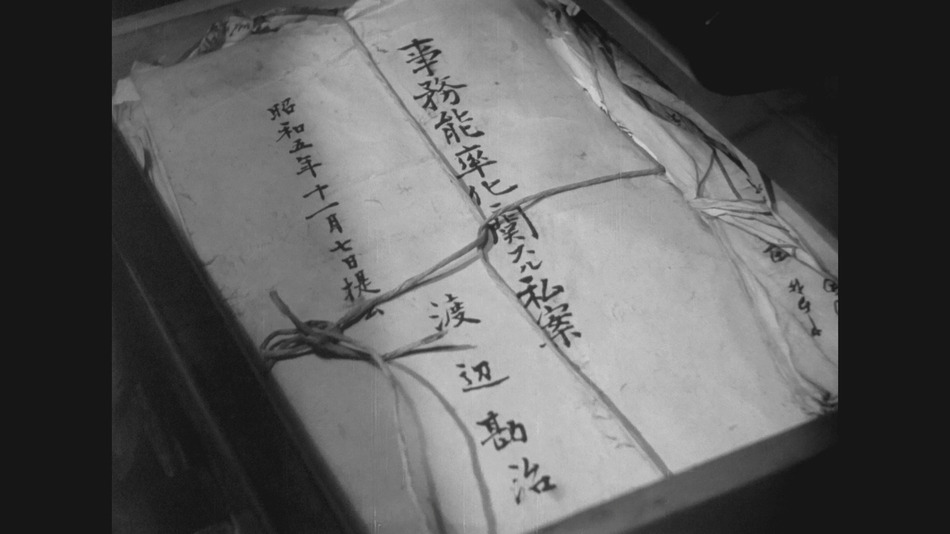 事務能率化ニ関スル私案
昭和五年十一月七日提出
渡辺勘治